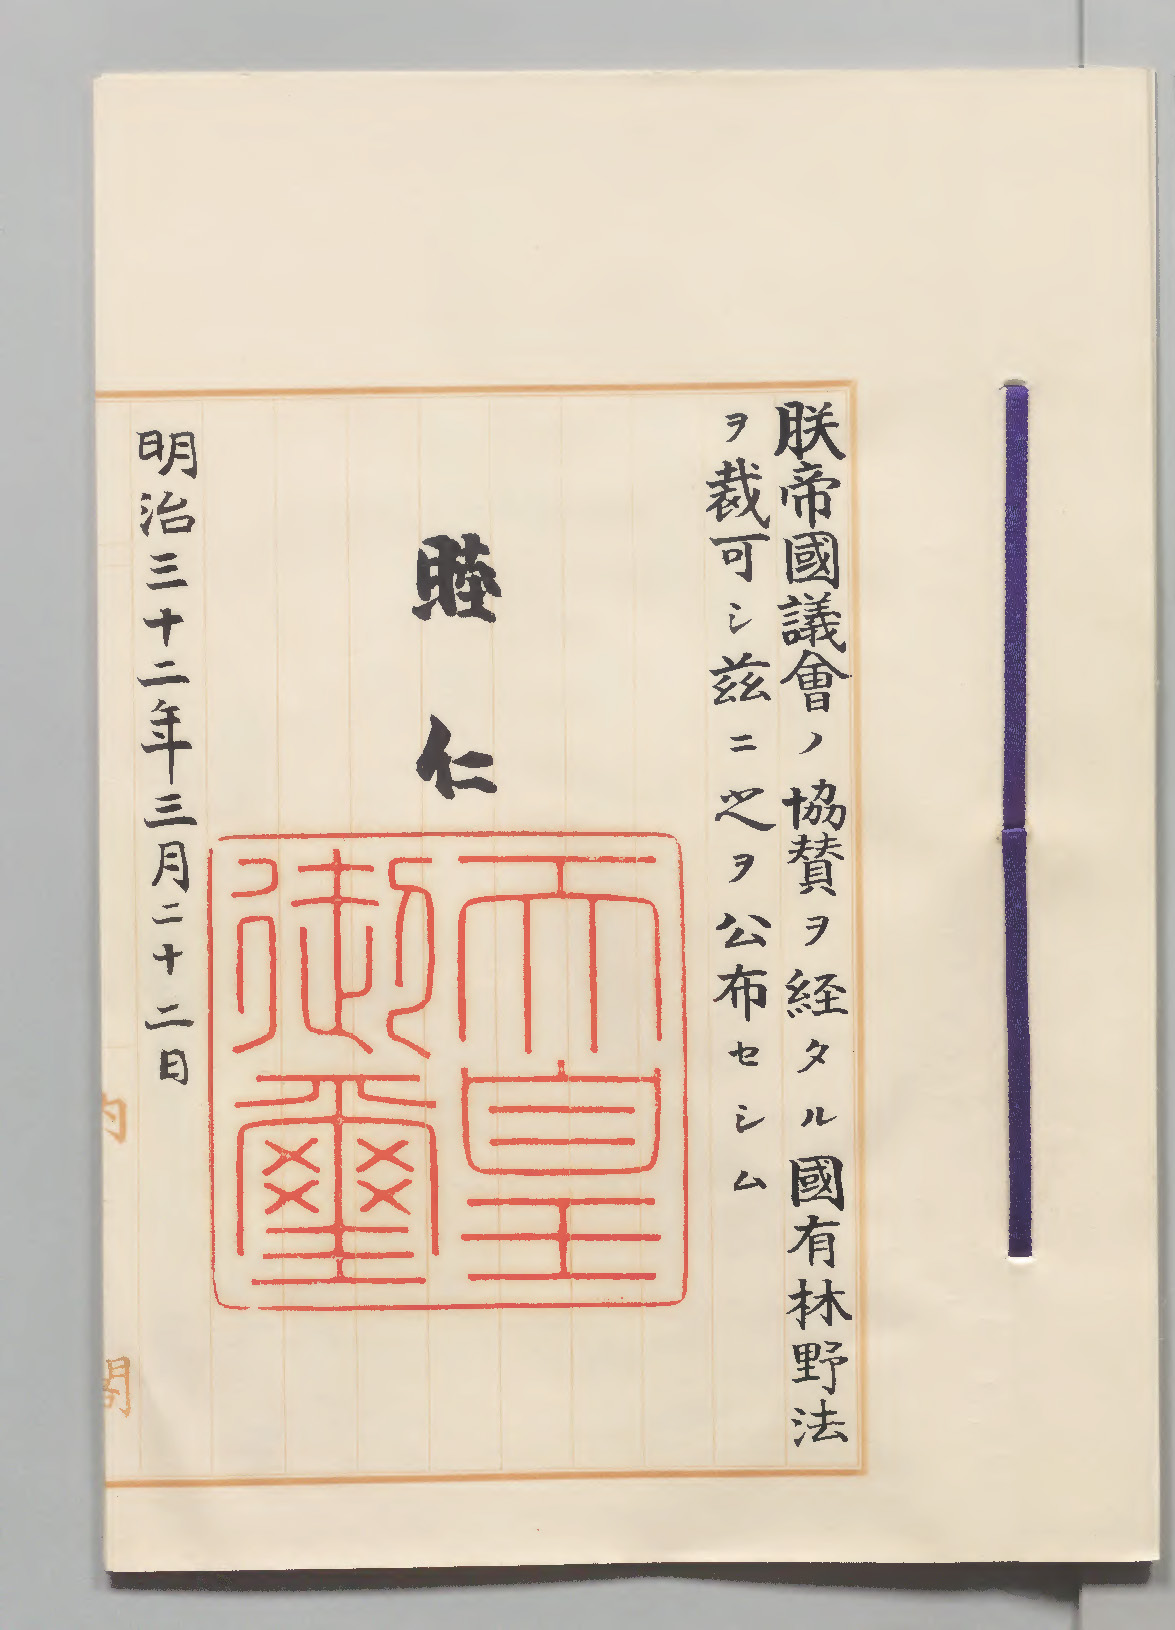 朕帝國議會ノ協賛ヲ経タル國有林野法
ヲ裁可シ茲ニ之ヲ公布セシム
睦仁
天皇
御璽
明治三十二年三月二十二日
内閣